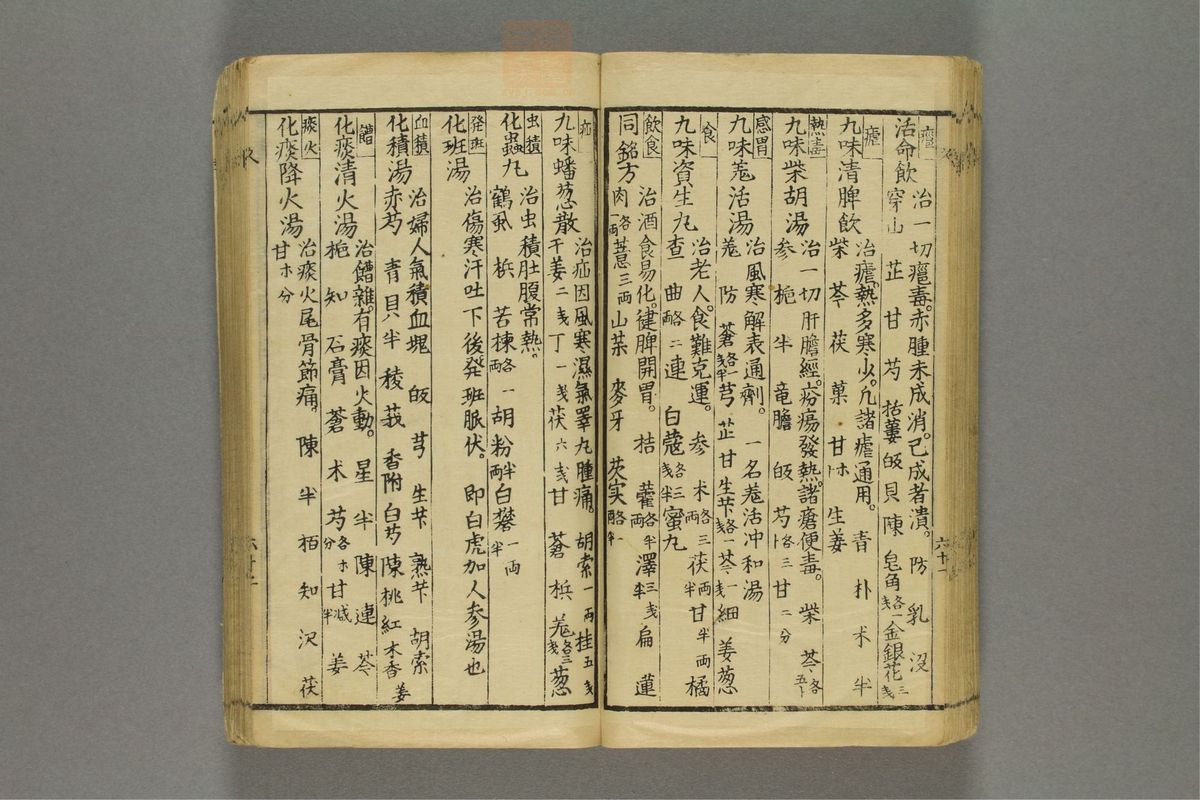 癰
活命飲
治一切癰毒。赤腫未成消。已成者潰。防 乳 没
穿山 芷 甘 芍 括蔞 皈 貝 陳 皂角各一戔 金銀花三戔
瘧
九味清脾飲
治瘧。熱多寒少。凢諸瘧通用。青 朴 朮 半
柴 芩 茯 菓 甘 生姜
熱毒
九味柴胡湯
治一切肝膽經。疥瘍發熱。諸瘡便毒。柴 芩各五卜
参 梔 半 竜膽 皈 芍各三卜 甘二分
感冒
九味羗活湯
治風寒解表通劑。一名羗活冲和湯
羗 防 蒼各一戔半 芎 芷 甘 生芐各一戔 芩一戔 細 姜葱
食
九味資生丸
治老人。食難克運。参 朮各三両 茯両半 甘半両 橘
查 曲各二両 連 白蔻各三戔半 蜜丸
飲食
同銘方
治酒食易化。健脾開胃。桔 藿各半両 澤三戔半 扁 蓮
肉各一両 薏三両 山薬 麥牙 芡实各一両半
疝
九味蟠葱散
治疝因風寒濕氣睪丸腫痛。胡索一両 桂五戔
干姜二戔 丁一戔 茯六戔 甘 蒼 梹 羗各三戔 葱
虫積
化蟲丸
治虫積肚腹常熱。
鶴虱 梹 苦楝各一両 胡粉半両 白礬一両半
発班
化班湯
治傷寒汗吐下後発班脈伏。即白虎加人参湯也
血積
化積湯
治婦人氣積血塊 皈 芎 生芐 熟芐 胡索
赤芍 青 貝 半 稜 莪 香附 白芍 陳 桃 紅 木香 姜
饐
化痰清火湯
治饐雜。有痰因火動。星 半 陳 連 芩
梔 知 石膏 蒼 朮 芍各 分 甘減半 姜
痰火
化痰降火湯
治痰火尾骨節痛。陳 半 栢 知 沢 茯
甘 分
六十一